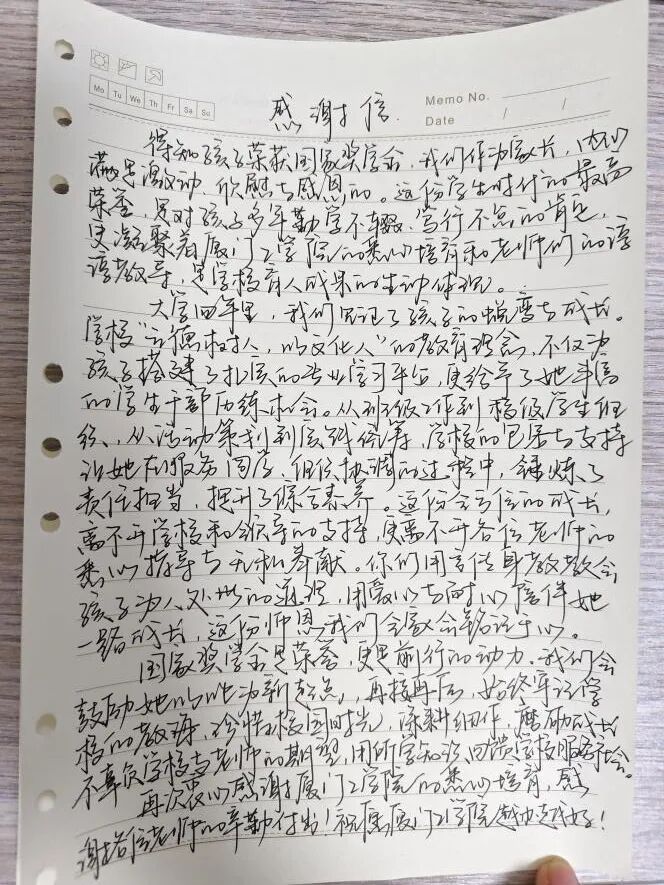 Mo Tu We Th Fr Sa Su
Memo No.
Date / /
感谢信
得知孩子荣获国家奖学金，我们作为家长，内心
满是激动、欣慰与感恩的。这份学生时代的最高
荣誉，是对孩子多年勤学不辍、笃行不怠的肯定，
更凝聚着厦门工学院的悉心培育和老师们的谆
谆教导，是学校育人成果的生动体现。
大学四年里，我们见证了孩子的蜕变与成长。
学校“立德树人，以文化人”的教育理念，不仅为
孩子搭建了扎实的专业学习平台，更给予了她丰富
的学生干部历练机会。从班级工作到校级学生组
织、从活动策划到实践统筹，学校的包容与支持
让她在服务同学、组织协调的过程中，锤炼了
责任担当，提升了综合素养。这份全方位的成长，
离不开学校和领导的支持，更离不开各位老师的
悉心指导与无私奉献。你们用言传身教教会
孩子为人处世的道理，用爱心与耐心陪伴她
一路成长，这份师恩我们全家会铭记于心。
国家奖学金是荣誉，更是前行的动力。我们会
鼓励她以此为新起点，再接再厉，始终牢记学
校的教诲，珍惜校园时光，深耕细作，磨砺成长
不辜负学校与老师的期望，用所学知识回馈学校服务社会。
再次衷心感谢厦门工学院的悉心培育，感
谢各位老师的辛勤付出！祝愿厦门工学院越办越好！